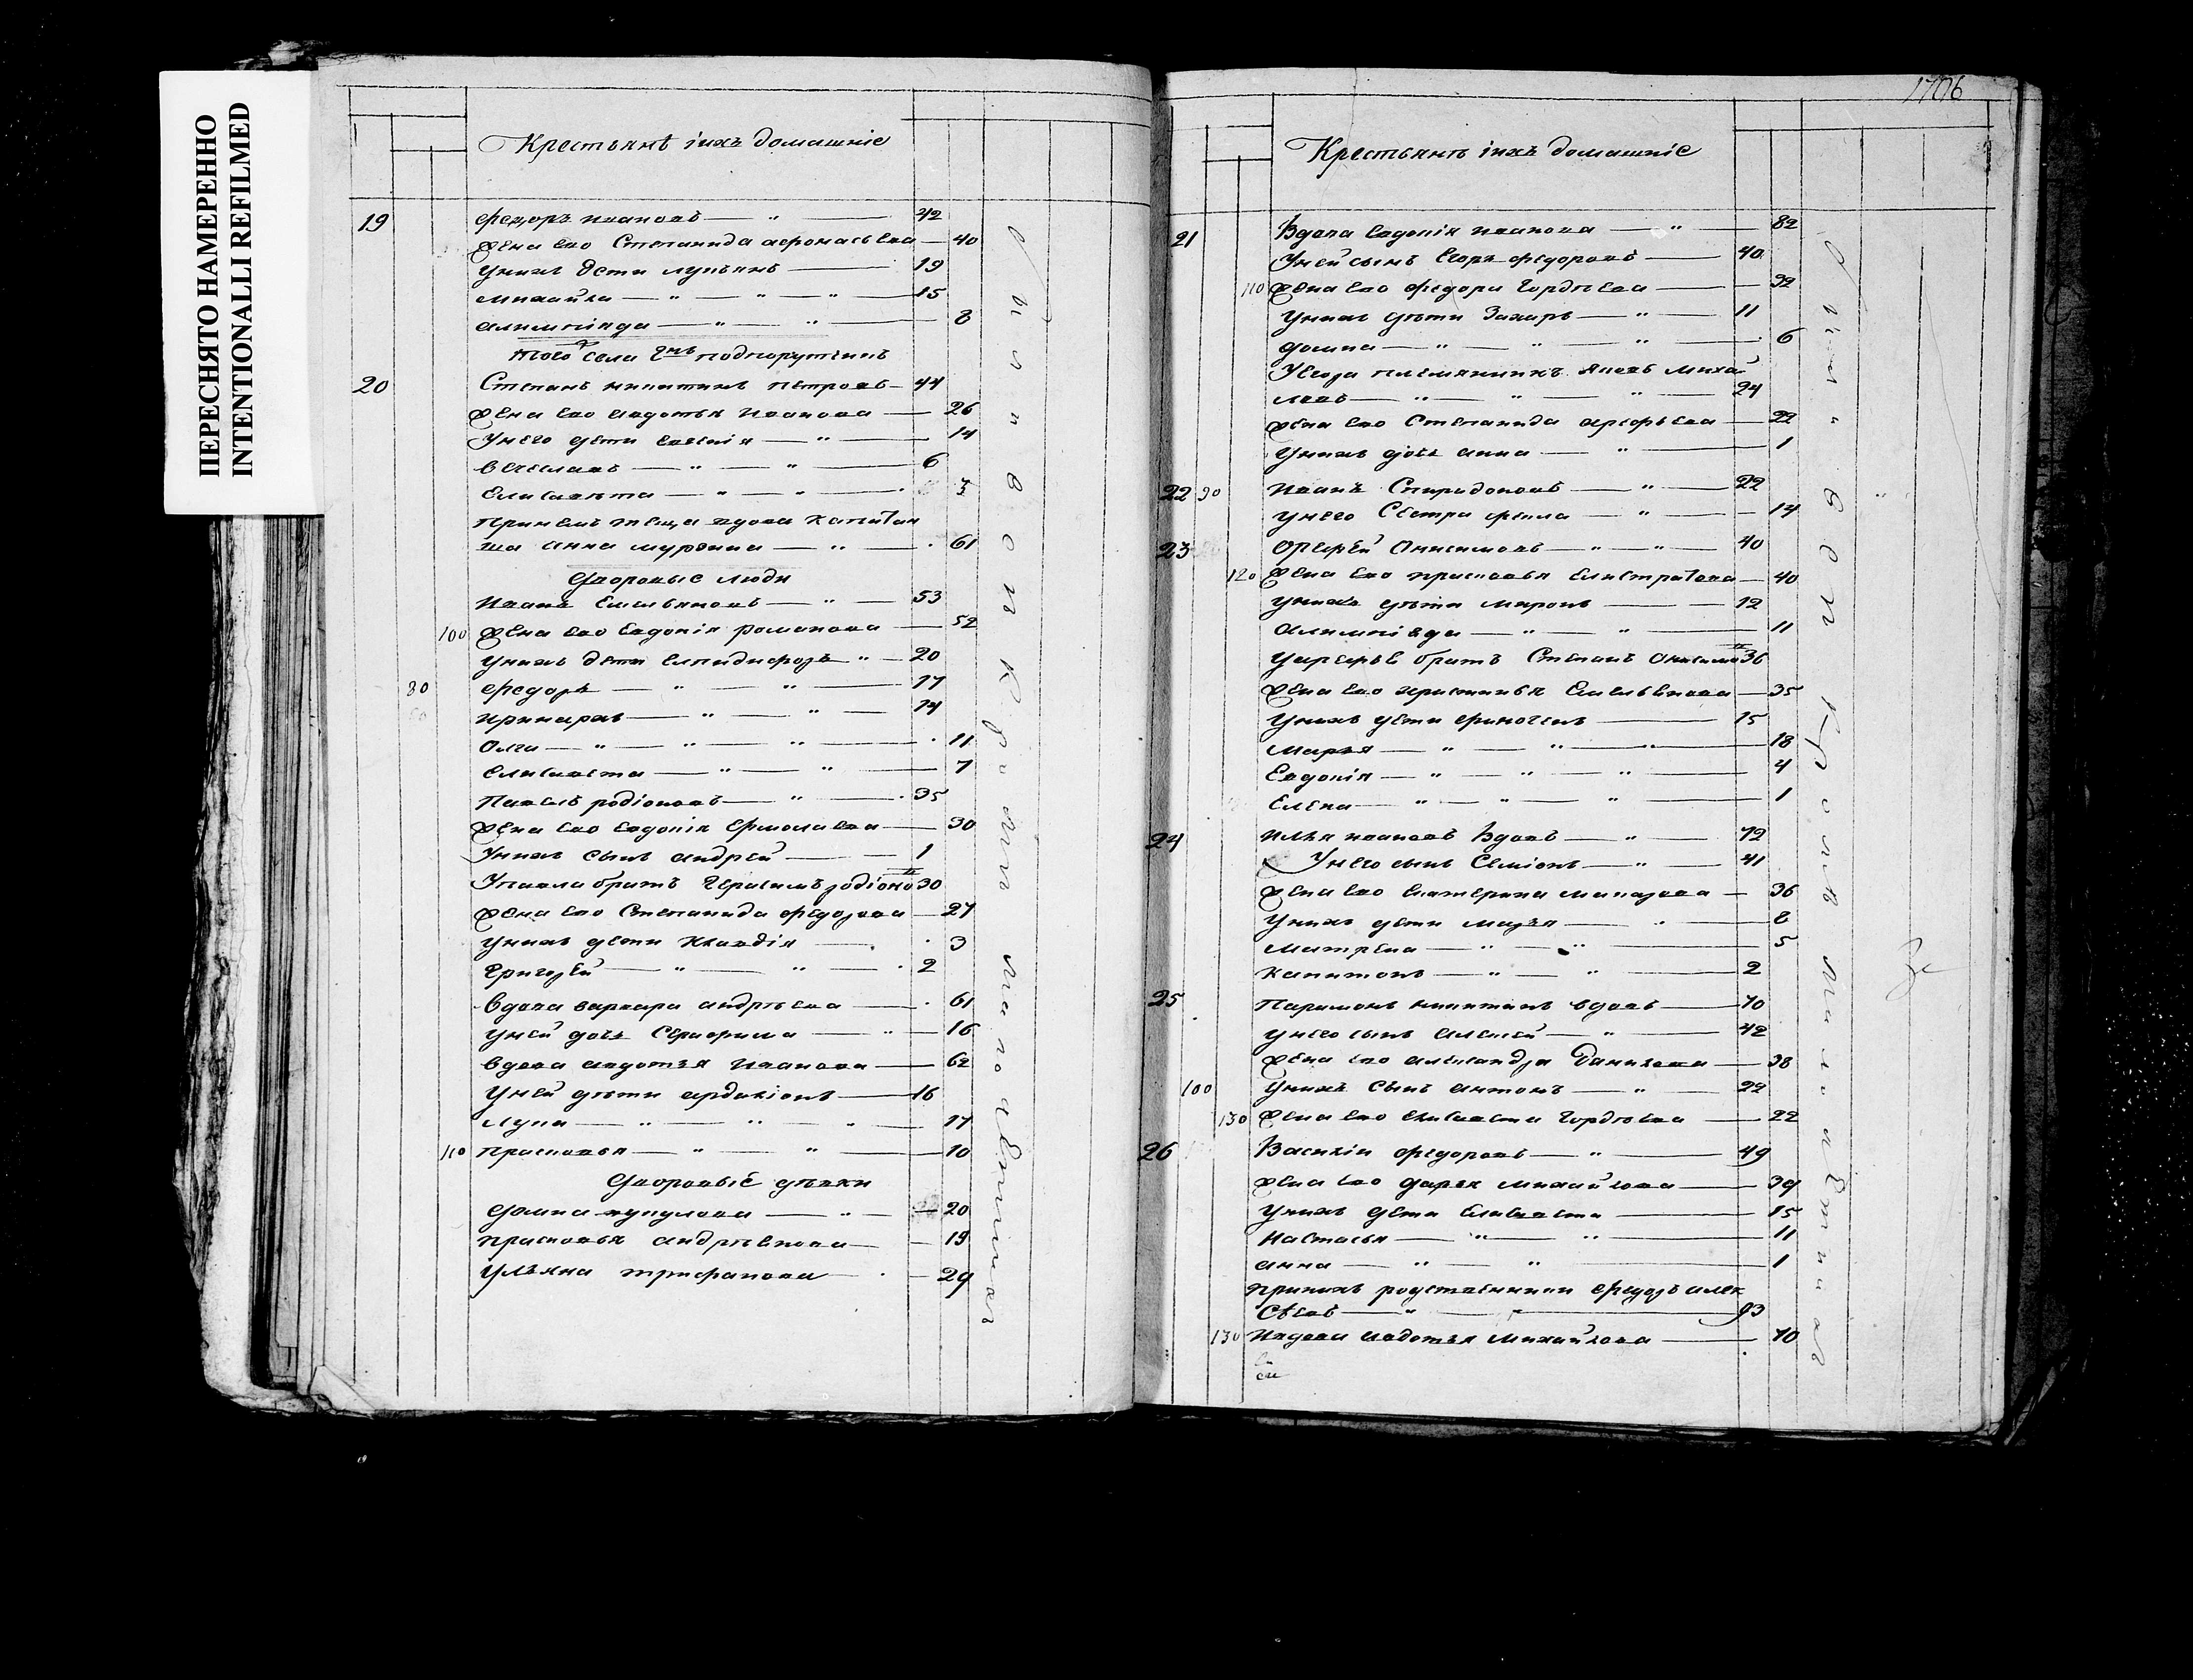 ПЕРЕСНЯТО НАМЕРЕННО
INTENTIONALLI REFILMED
Крестьянѣ іихъ домашніе
19 Федоръ Ивановъ 42
Жена ево Степанида Афонасьева 40
Унихъ дети Лупьянъ 19
Михайла 15
Алимпіяда 8
того села подпорутчикъ
20 Степанъ Никитинъ Петровъ 44
Жена ево Авдотья Иванова 26
Унего дети Евгенія 14
Вечеславъ 6
Елисавета 3
Принемъ теща вдова капитан
ша Анна 61
Дворовые люди
Иванъ Емельяновъ 53
100 Жена ево Евдокія Романова 52
Унихъ дети Елпидифоръ 20
80 Федоръ 17
Иринархъ 14
Олга 11
Елисавета 7
Павелъ Родіоновъ 35
Жена ево Евдокія Ермолаева 30
Унихъ сынъ Андрей 1
Упавла братъ Герасимъ Родіоно 30
Жена ево Степанида Федорова 27
Унихъ дети Клавдія 3
Григорей 2
Вдова Варвара Андрѣева 61
Уней дочь Серафима 16
Вдова Авдотья Иванова 62
Уней дѣти Ардаліонъ 16
Лупа 17
110 Прасковья 10
Дворовые дѣвки
Домна 20
Прасковья Андрѣенова 19
Ульяна Трифанова 29
1706
Крестьянѣ іихъ домашніе
21 Вдова Евдокія Иванова 82
Уней сынъ Егоръ Федоровъ 40
110 Жена ево Федора Гордѣева 32
Унихъ дѣти Захаръ 11
Домна 6
Уегора племянникъ Яковъ Михай
ловъ 24
Жена ево Степанида Арефьева 22
Унихъ дочь Анна 1
22 90 Иванъ Спиридоновъ 22
Унего сестра Фекла 14
23 Орефей Онисимовъ 40
120 Жена ево Прасковья Елистратова 40
Унихъ дѣти Миронъ 12
Алимпіяда 11
Уарефья братъ Степанъ Онисимо 36
Жена ево Емельянова 35
Унихъ дети Финогенъ 15
Марья 18
Евдокія 4
Елена 1
24 Илья Ивановъ вдовъ 72
Унего сынъ Семіонъ 41
Жена ево Екатерина Макарова 36
Унихъ дети Марья 8
Матрена 5
Капитонъ 2
25 Парамонъ Никитинъ вдовъ 70
Унего сынъ Алексей 42
Жена ево Александра Данилова 38
100 Унихъ сынъ Антонъ 22
130 Жена ево Елисавета Гордѣева 22
26 Василіи Федоровъ 49
Жена ево Дарья Михайлова 39
Унихъ дети Елисавета 15
Настасья 11
Анна 1
Принихъ родственники Федоръ Алек
сѣевъ 93
130 Ивдова Авдотья Михайлова 70